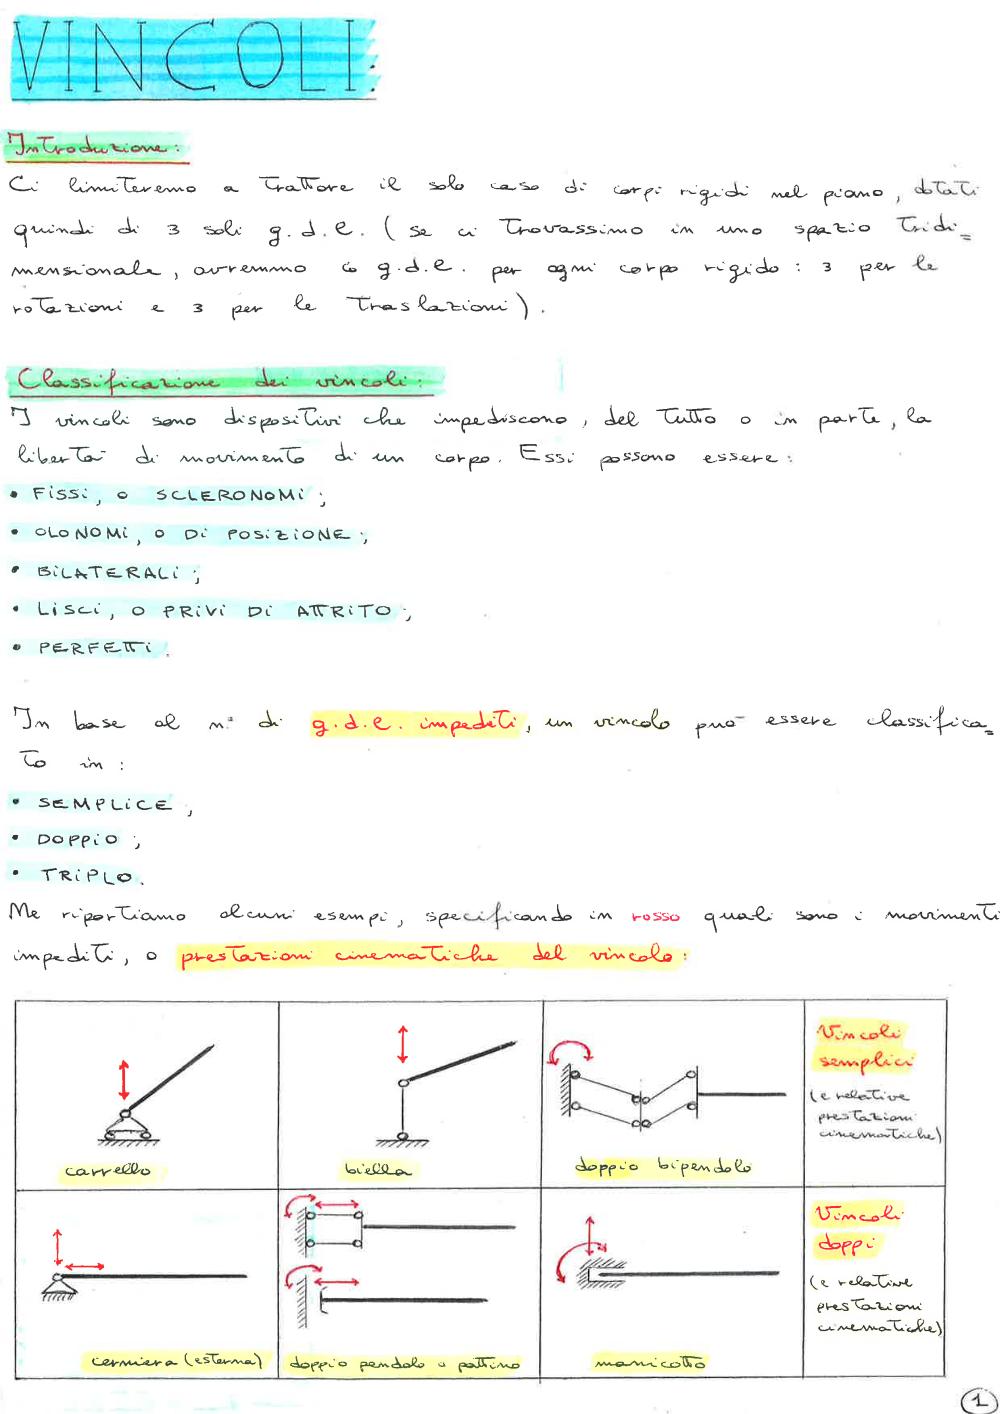 VINCOLI:
Introduzione:
Ci limiteremo a trattare il solo caso di corpi rigidi nel piano, dotati
quindi di 3 soli g.d.l. (se ci trovassimo in uno spazio tridi=
mensionale, avremmo 6 g.d.l. per ogni corpo rigido: 3 per le
rotazioni e 3 per le traslazioni).
Classificazione dei vincoli:
I vincoli sono dispositivi che impediscono, del tutto o in parte, la
libertà di movimento di un corpo. Essi possono essere:
• FISSI, O SCLERONOMI;
• OLONOMI, O DI POSIZIONE;
• BILATERALI;
• LISCI, O PRIVI DI ATTRITO;
• PERFETTI.
In base al n° di g.d.l. impediti, un vincolo può essere classifica=
to in:
• SEMPLICE,
• DOPPIO;
• TRIPLO.
Ne riportiamo alcuni esempi, specificando in rosso quali sono i movimenti
impediti, o prestazioni cinematiche del vincolo:
carrello
biella
doppio bipendolo
Vincoli
semplici
(e relative
prestazioni
cinematiche)
cerniera (esterna)
doppio pendolo o pattino
manicotto
Vincoli
doppi
(e relative
prestazioni
cinematiche)
1